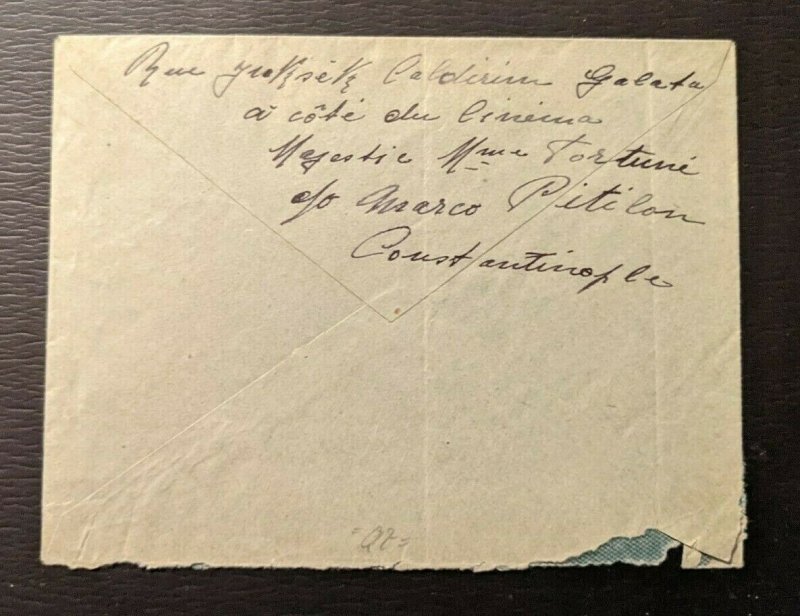 Rue Yuksék Caldirim Galata
à côté du Cinéma
Majestic Mme Fortuné
c/o Marco Pitilon
Constantinople